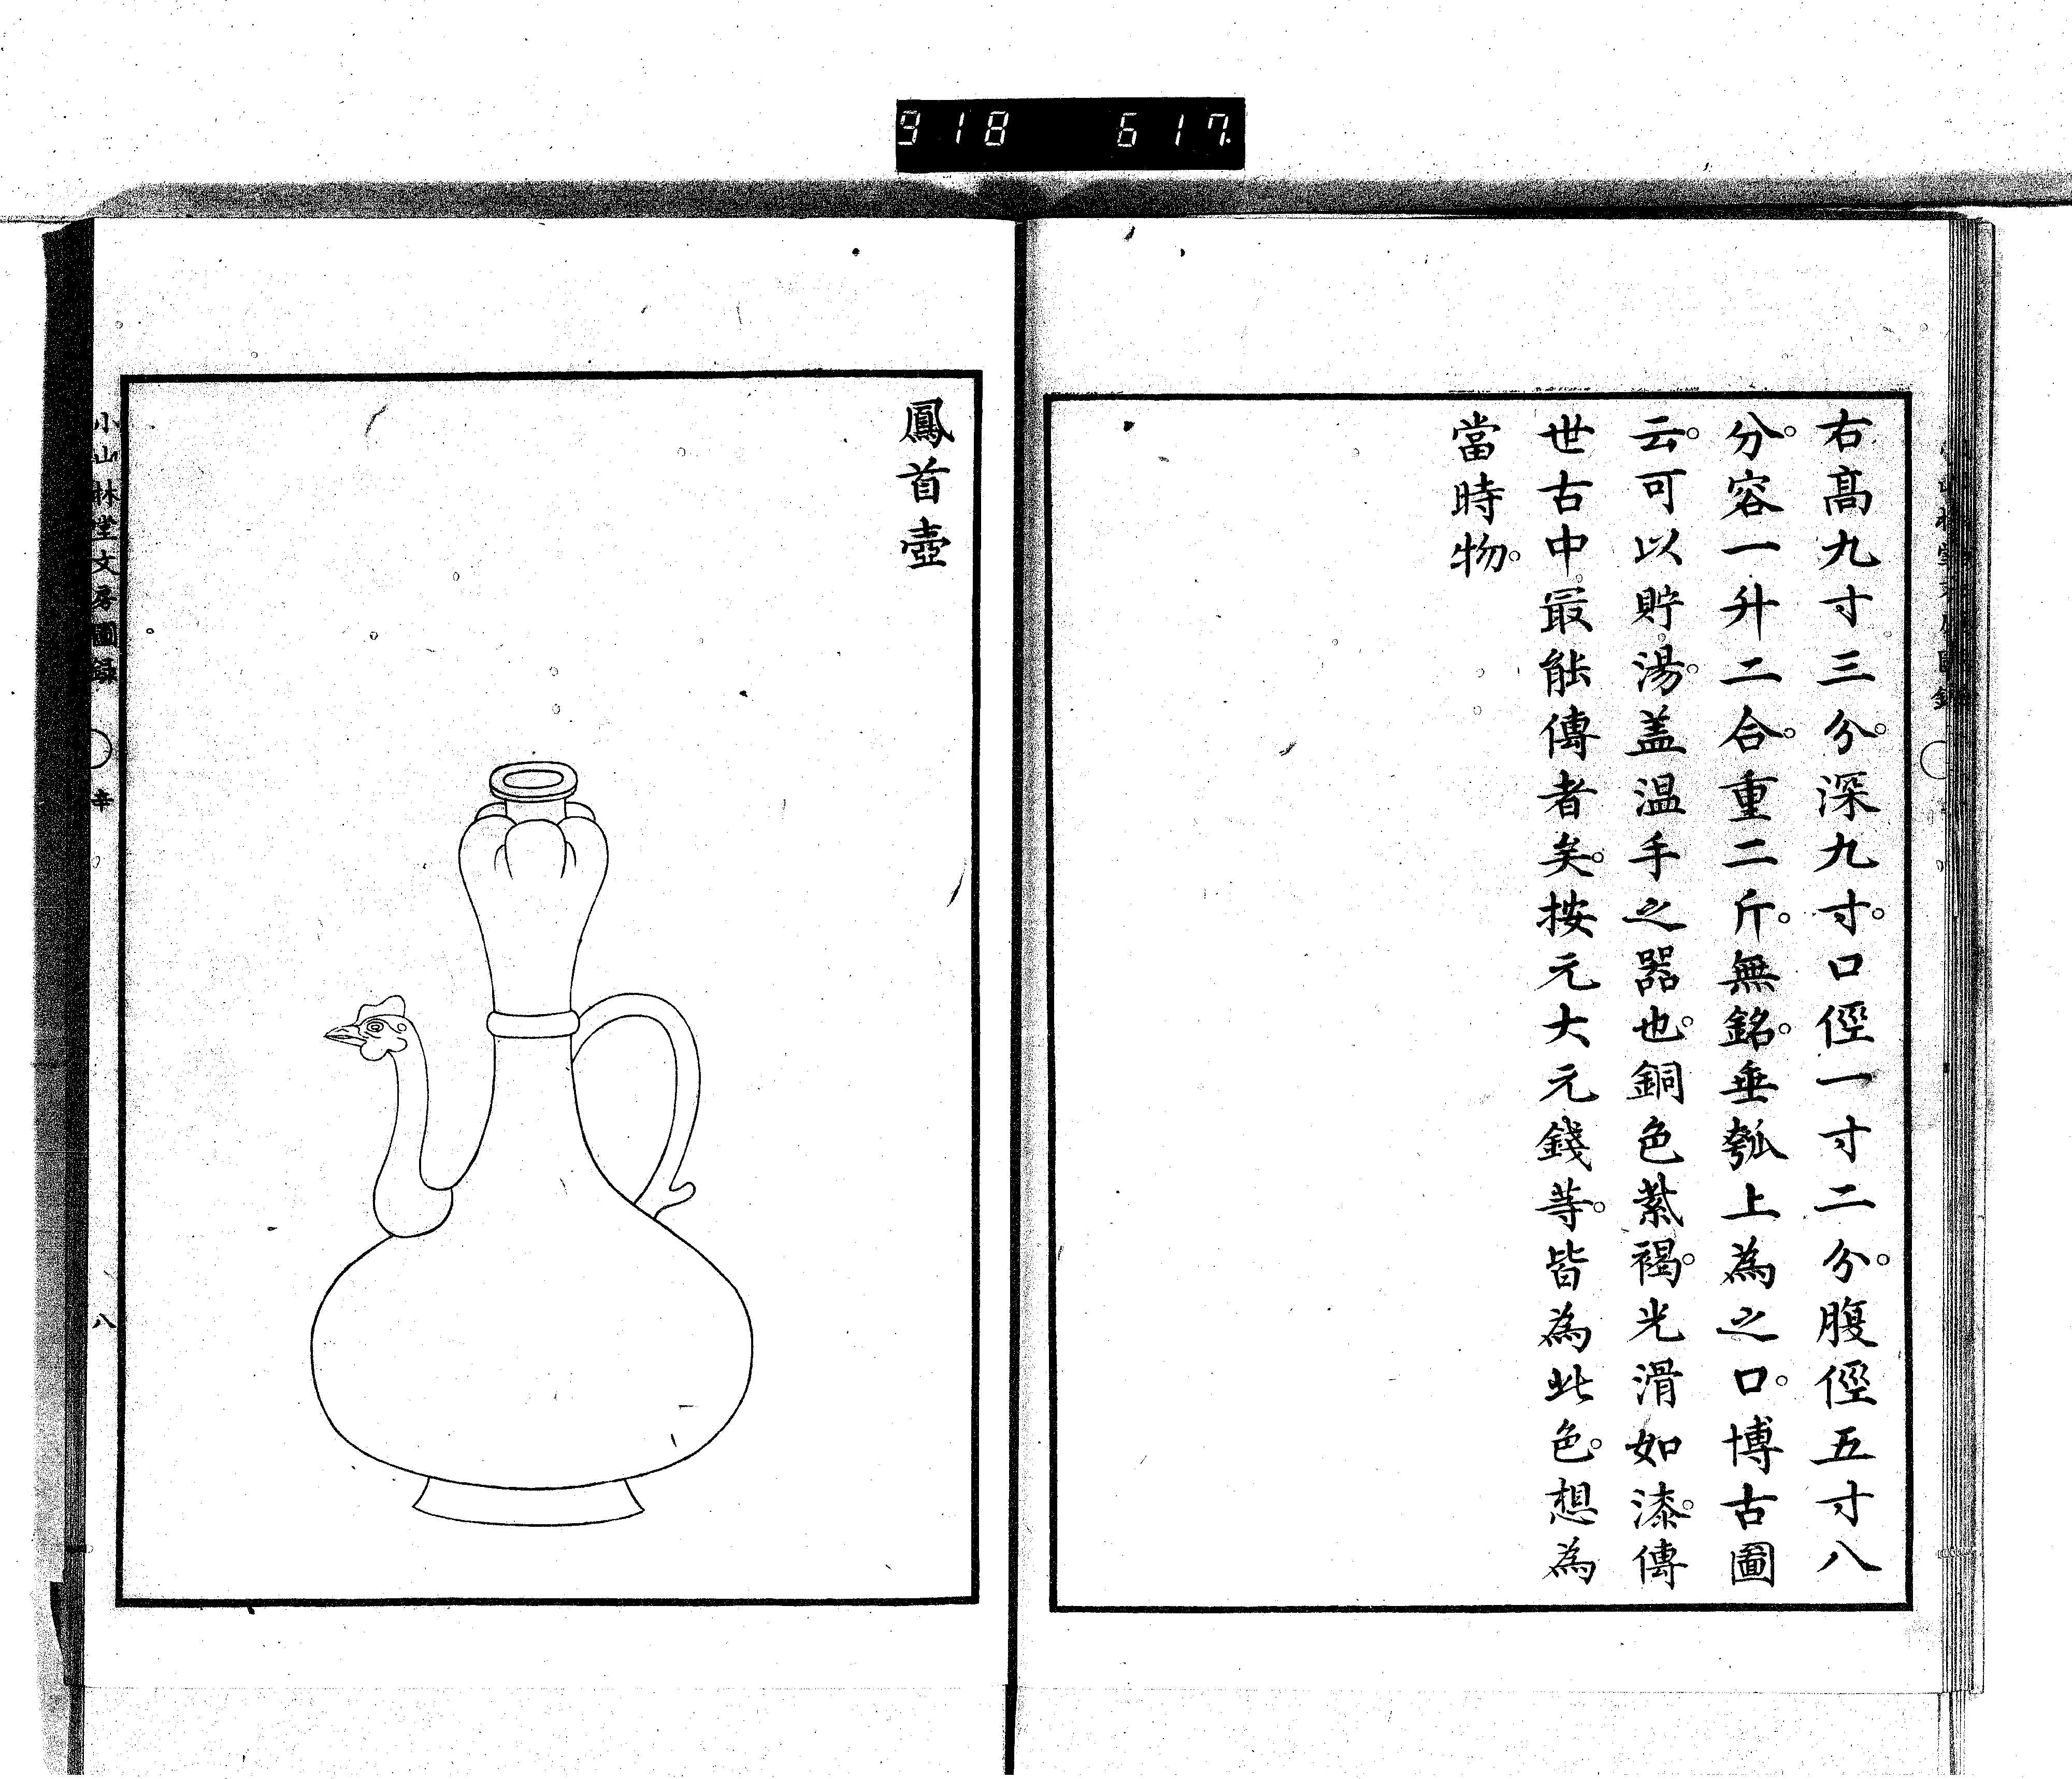 918 617
右髙九寸三分。深九寸。口徑一寸二分。腹徑五寸八
分。容一升二合。重二斤。無銘。垂瓠上為之口。博古圖
云。可以貯湯。盖温手之器也。銅色紫褐。光滑如漆。傳
世古中。最能傳者矣。按元大元錢等。皆為此色。想為
當時物。
鳳首壺
小山林堂文房圖録
辛
八